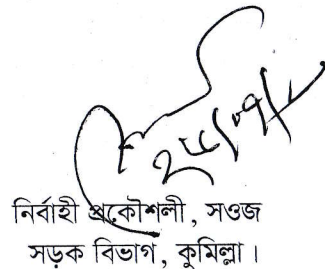 নির্বাহী প্রকৌশলী, সওজ
সড়ক বিভাগ, কুমিল্লা।